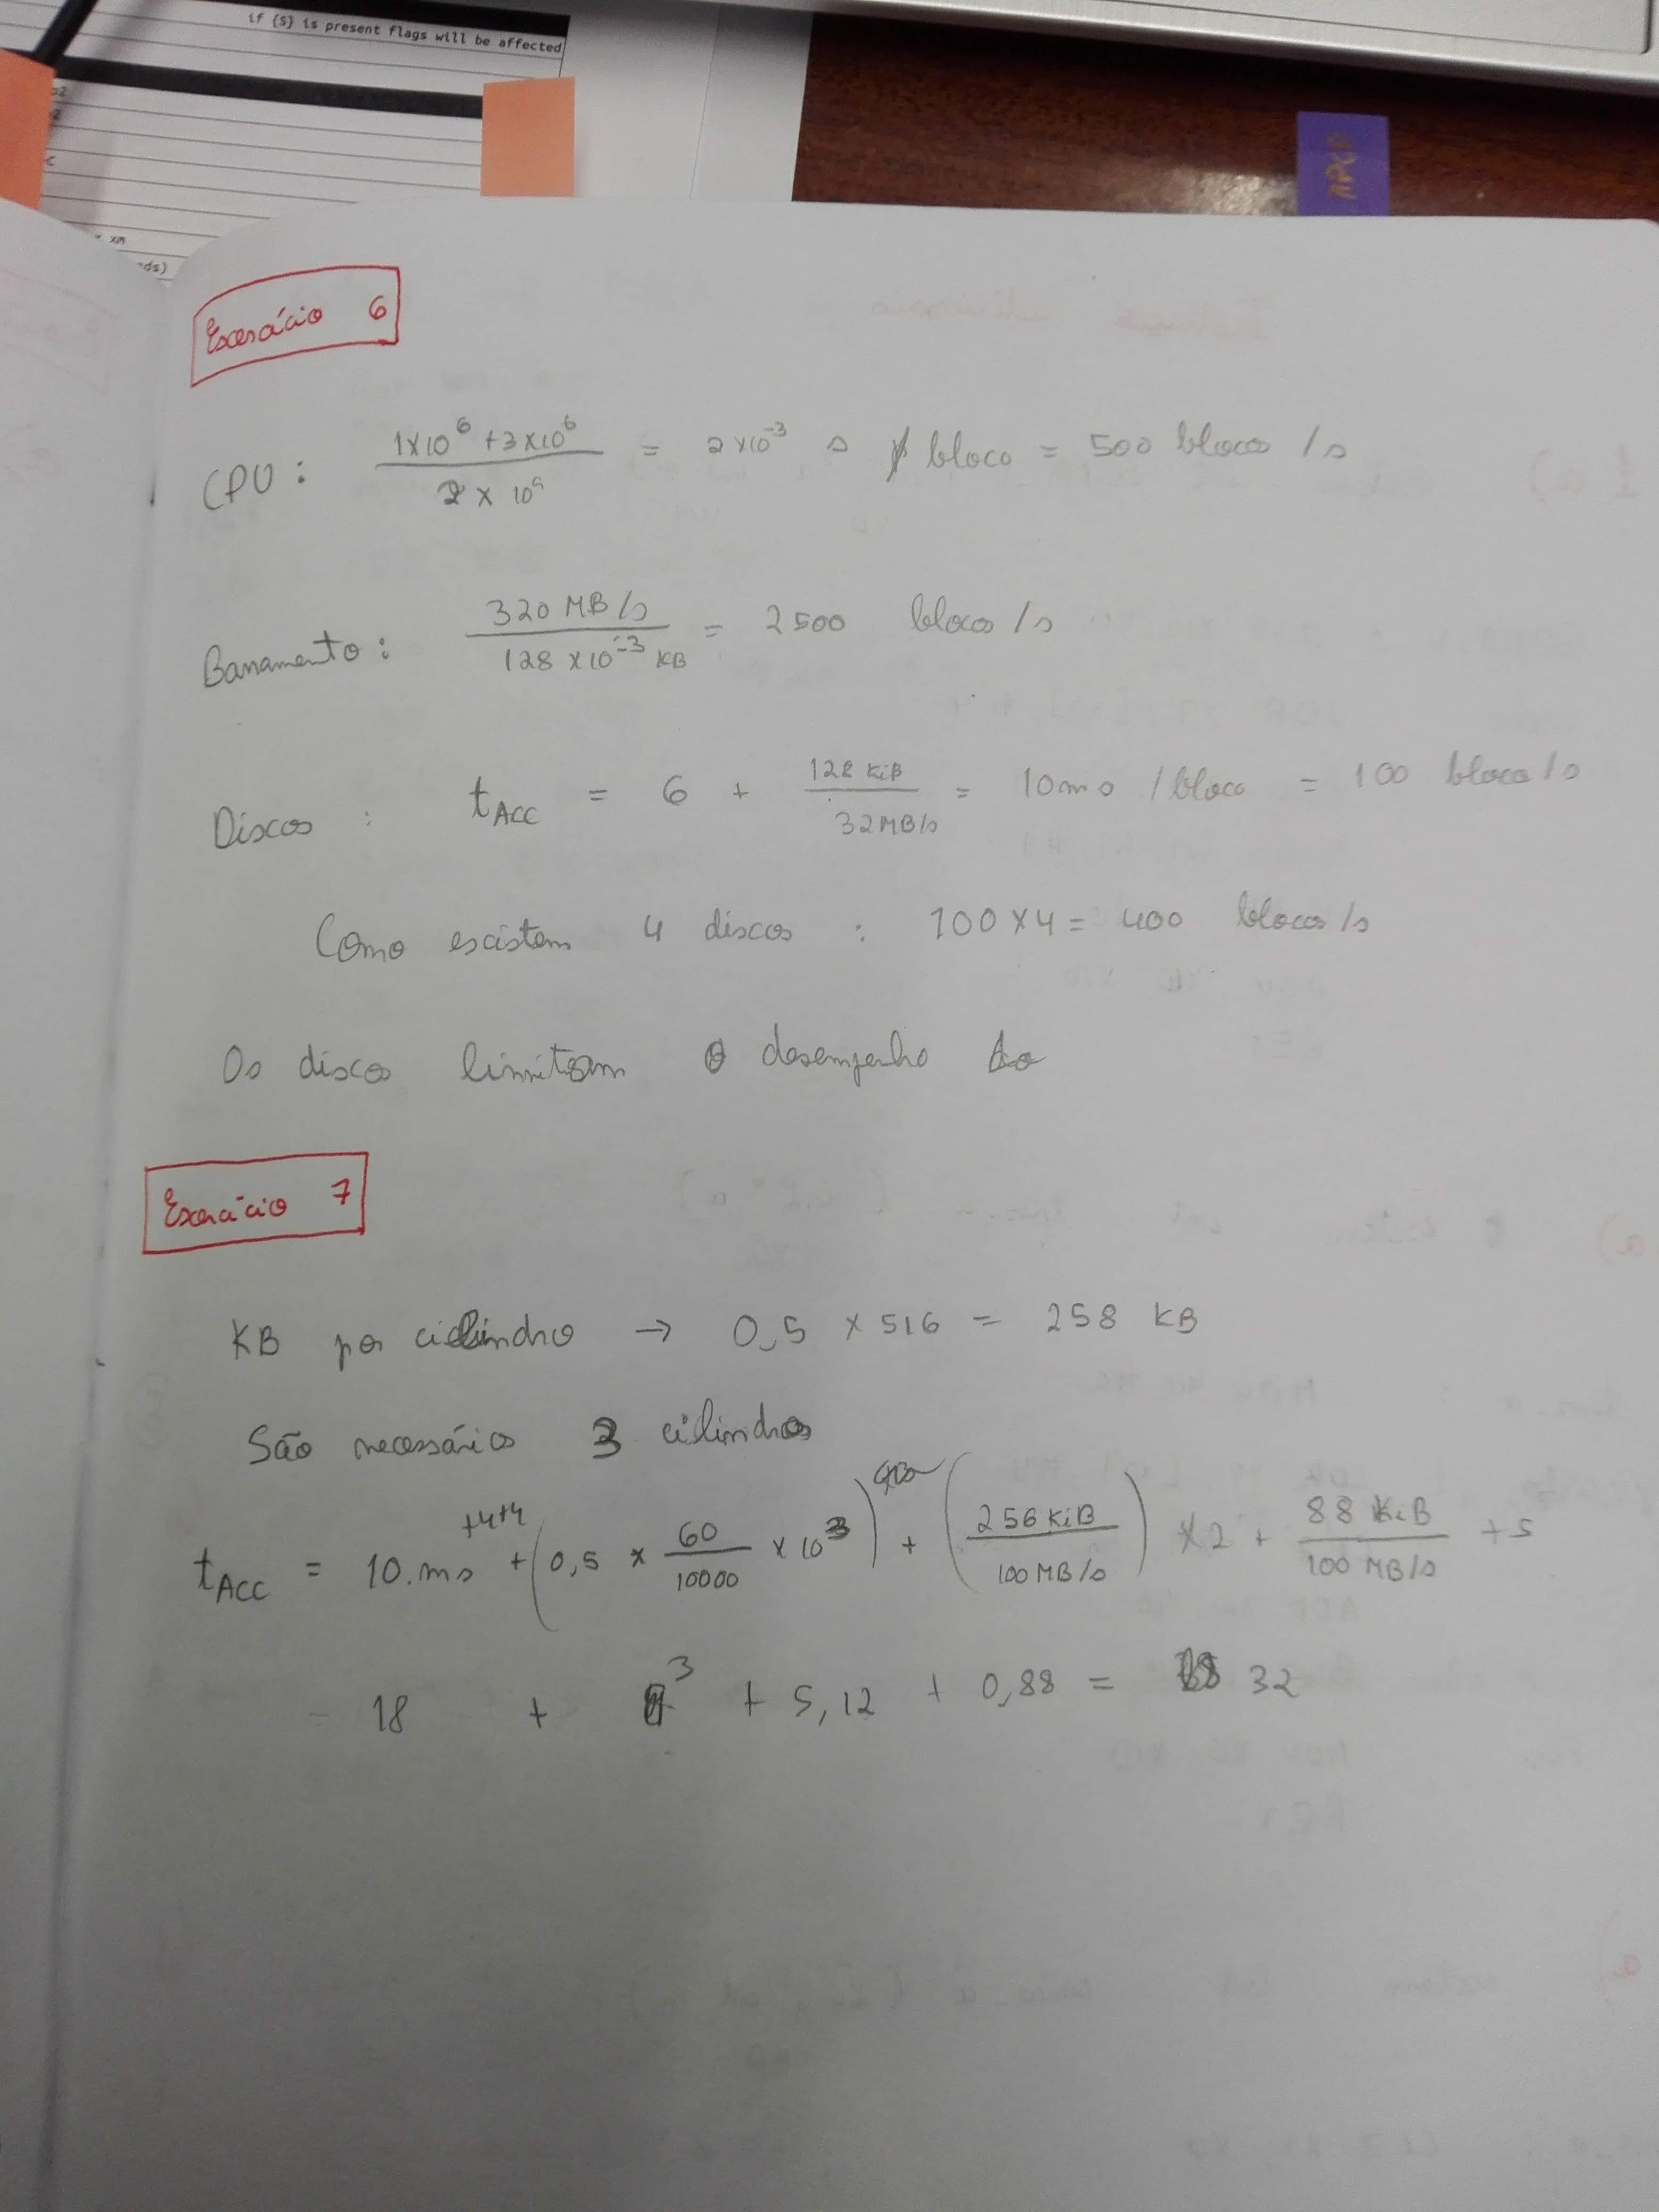 if {S} is present flags will be affected
xm
nds)
APCA
Exercício 6
CPU : 1x10^6 + 3x10^6 / 2 x 10^9 = 2 x10^-3 s / bloco = 500 blocos /s
Barramento : 320 MB/s / 128 x10^-3 KB = 2500 blocos /s
Discos : tACC = 6 + 128 KiB / 32MB/s = 10ms /bloco = 100 blocos/s
Como existem 4 discos : 100 x 4 = 400 blocos /s
Os discos limitam o desempenho
Exercício 7
KB por cilindro → 0,5 x 516 = 258 KB
São necessários 3 cilindros
tACC = 10.ms +4+4 + (0,5 x 60 / 10000 x 10^3) + (256 KiB / 100 MB/s) x 2 + 88 KiB / 100 MB/s + 5
18 + 3 + 5,12 + 0,88 = 32